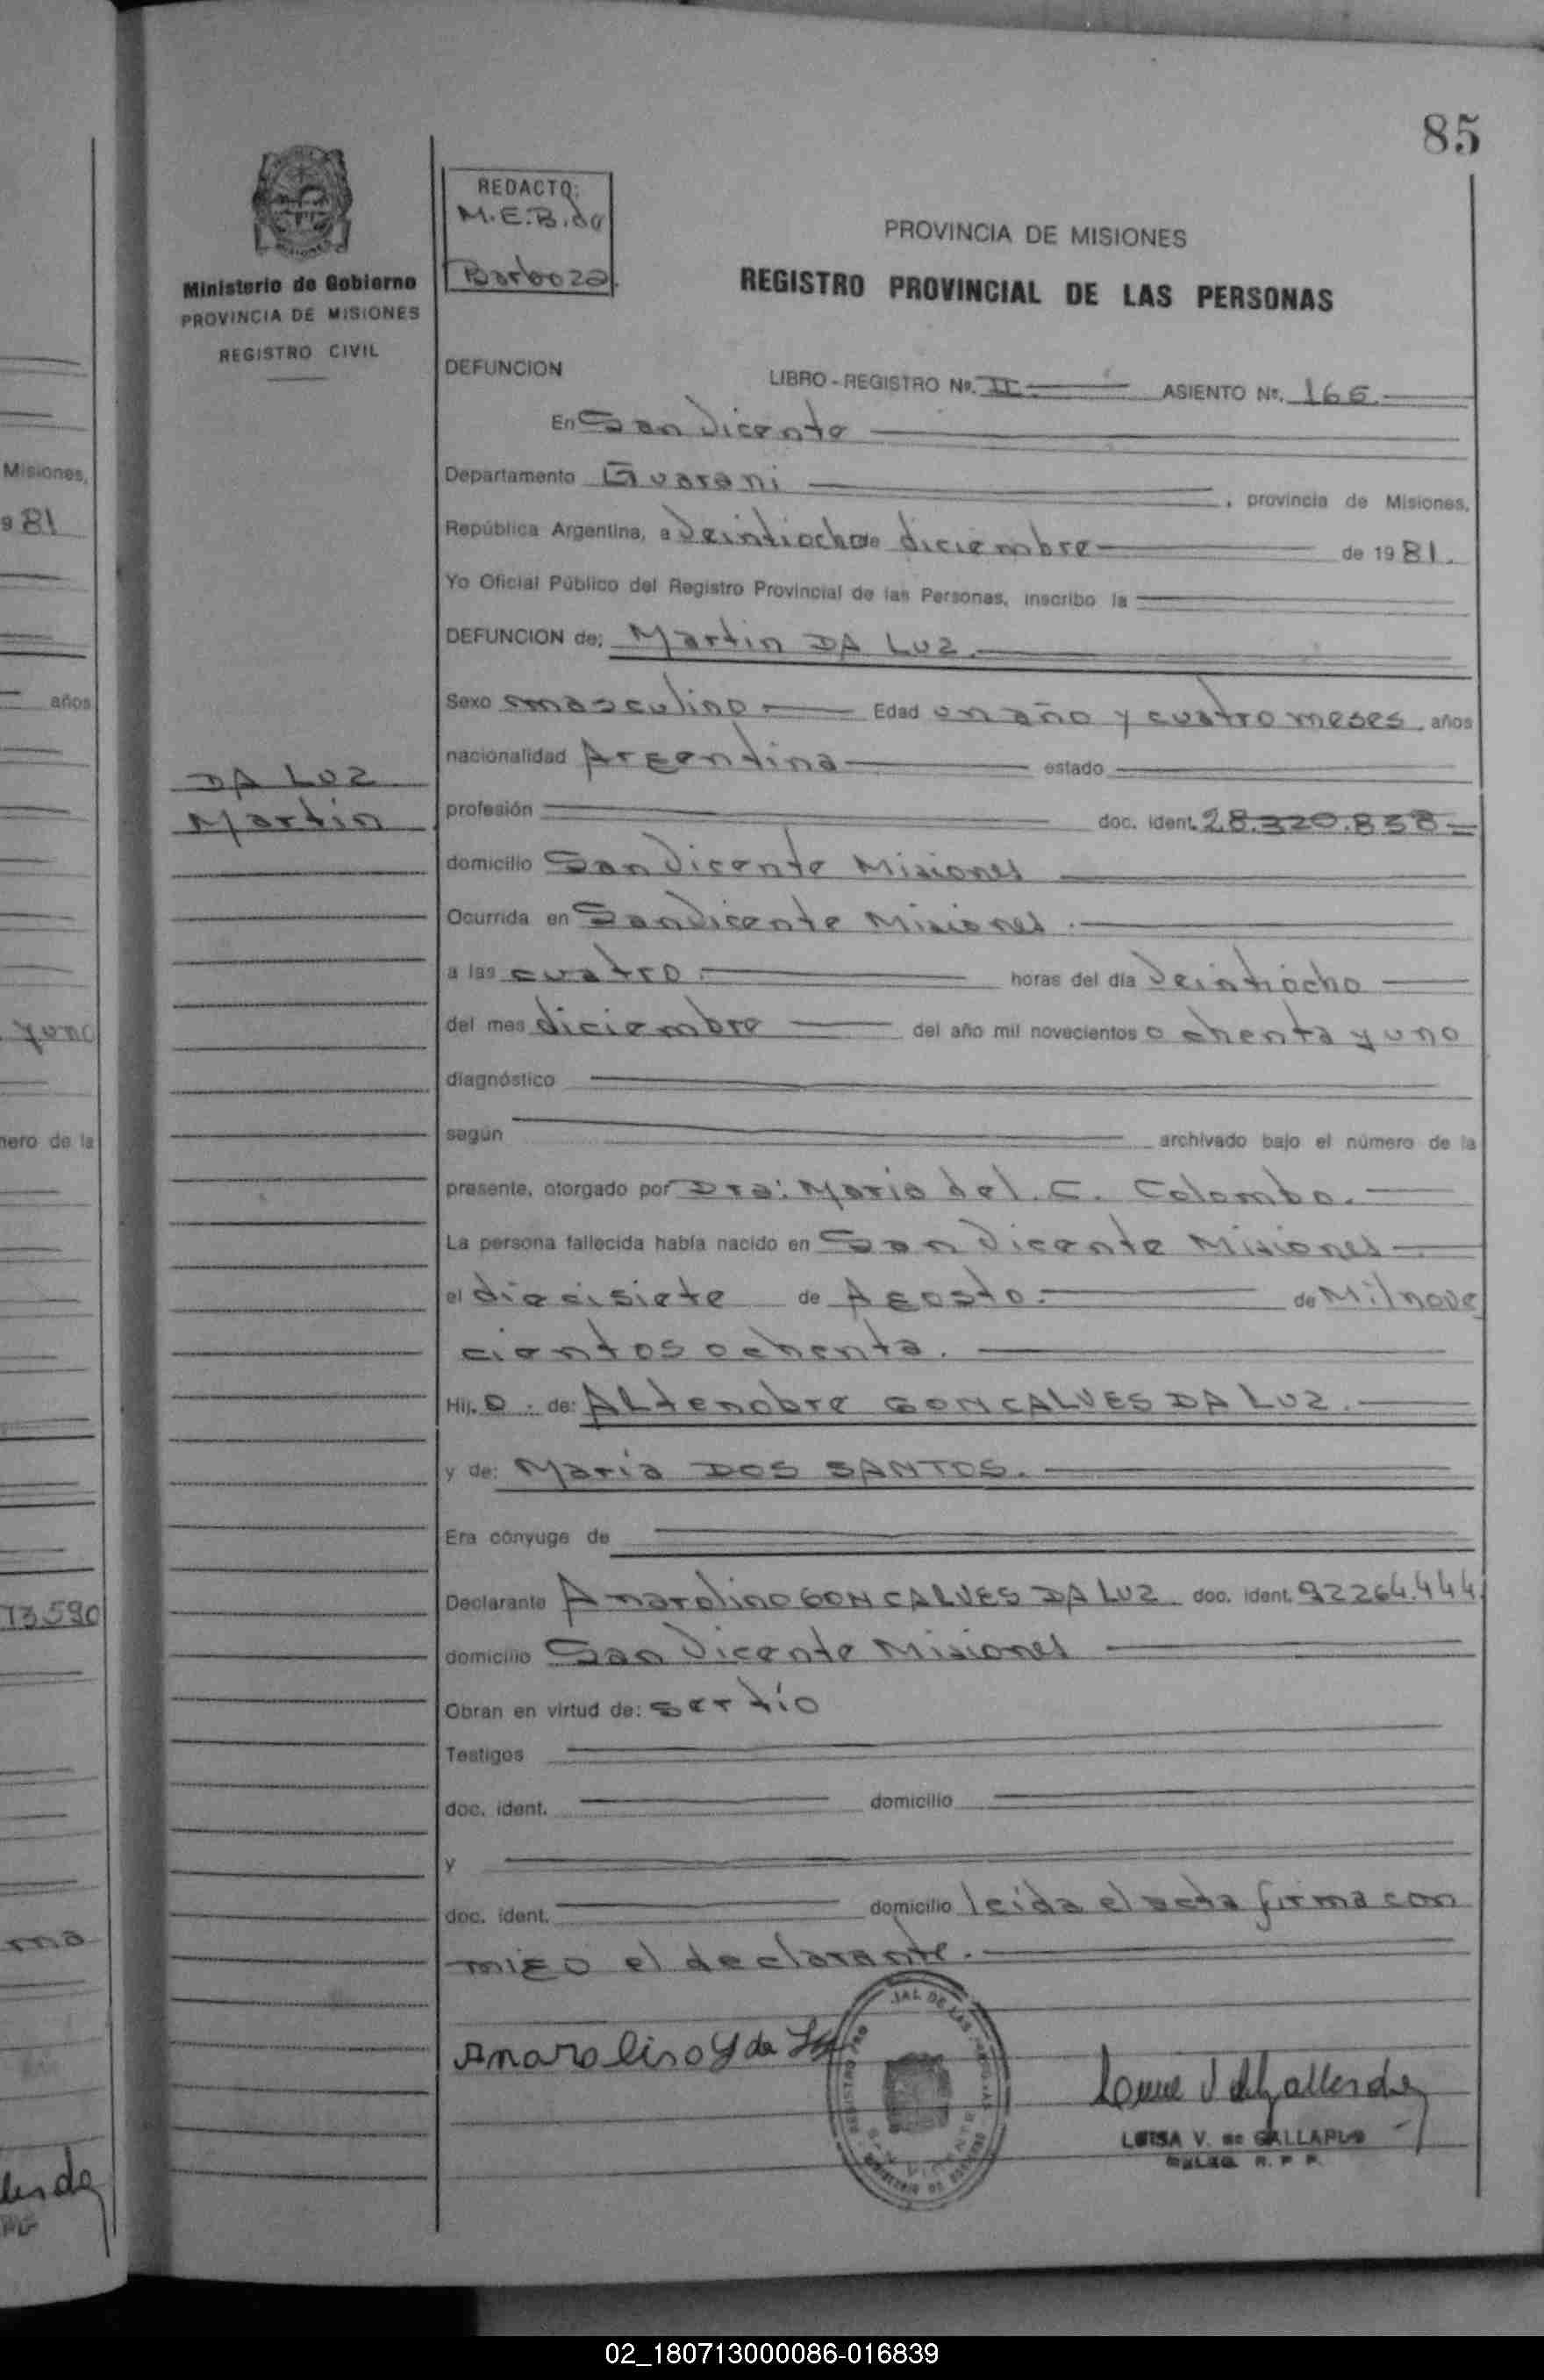 85
REDACTO:
M.E.B.da
Barboza
Ministerio de Gobierno
PROVINCIA DE MISIONES
REGISTRO CIVIL
PROVINCIA DE MISIONES
REGISTRO PROVINCIAL DE LAS PERSONAS
DEFUNCION LIBRO - REGISTRO Nº. II ASIENTO Nº. 166
En San Vicente
Departamento Guarani, provincia de Misiones,
República Argentina, a Veintiocho de diciembre de 1981.
Yo Oficial Público del Registro Provincial de las Personas, inscribo la
DEFUNCION de: Martin DA LUZ.
Sexo masculino Edad un año y cuatro meses. años
nacionalidad Argentina estado
DA LUZ
Martin
profesión doc. ident. 28.320.838
domicilio San Vicente Misiones
Ocurrida en San Vicente Misiones.
a las cuatro. horas del día Veintiocho
del mes diciembre del año mil novecientos ochenta y uno
diagnóstico
según archivado bajo el número de la
presente, otorgado por Dra: Maria del. C. Colombo.
La persona fallecida había nacido en San Vicente Misiones
el diecisiete de Agosto. de Mil nove
cientos ochenta.
Hij. o. de: ALtenobre GONCALVES DA LUZ.
y de: Maria DOS SANTOS.
Era cónyuge de
Declarante Anarolino GONCALVES DA LUZ. doc. ident. 92264.444
domicilio San Vicente Misiones
Obran en virtud de: ser tío
Testigos
doc. ident. domicilio
y
doc. ident. domicilio leida el acta firma con
migo el declarante.
LUISA V. de
Misiones,
981
años
yuno
nero de la
73.590
ma
02_180713000086-016839